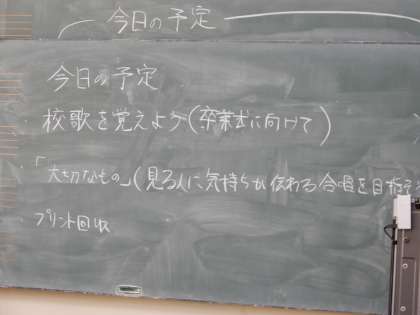 今日の予定
今日の予定
校歌を覚えよう(卒業式に向けて)
「大切なもの」(見る人に気持ちが伝わる合唱を目指そ
プリント回収